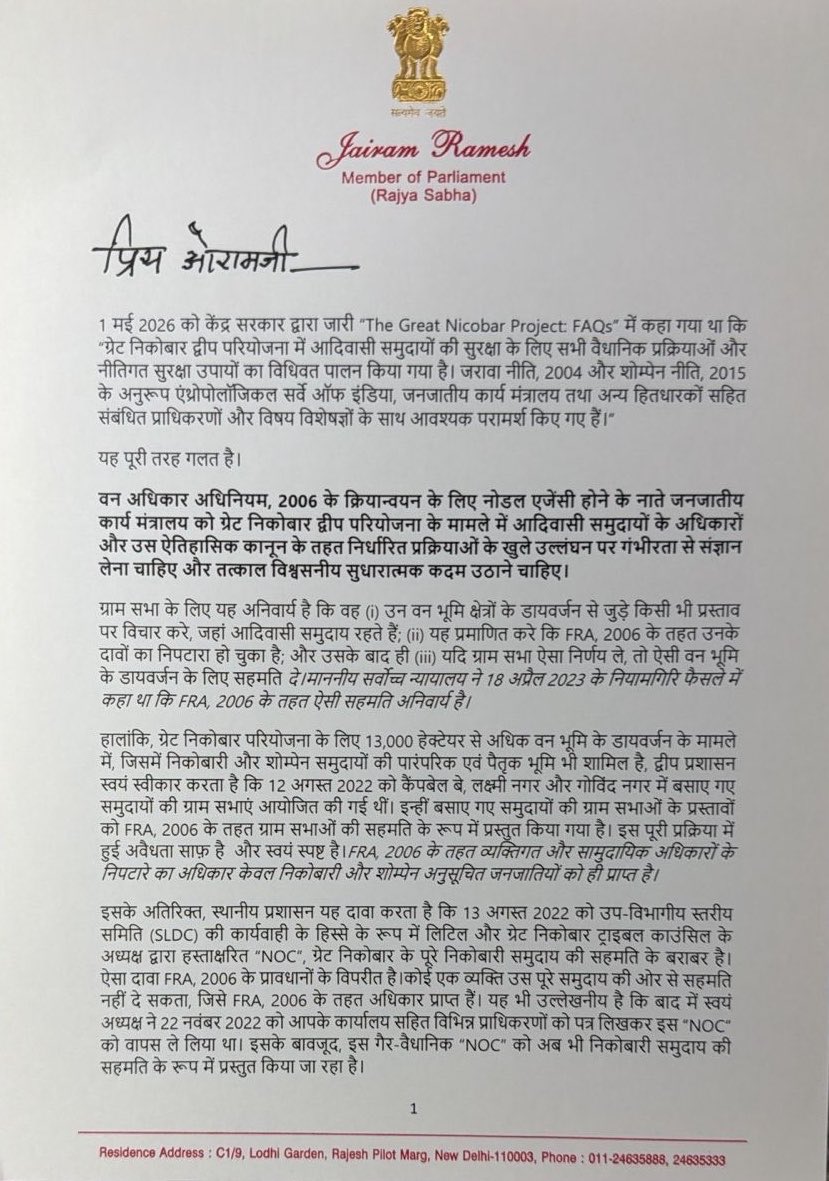 सत्यमेव जयते
Jairam Ramesh
Member of Parliament
(Rajya Sabha)
प्रिय ओरामजी
1 मई 2026 को केंद्र सरकार द्वारा जारी “The Great Nicobar Project: FAQs” में कहा गया था कि
“ग्रेट निकोबार द्वीप परियोजना में आदिवासी समुदायों की सुरक्षा के लिए सभी वैधानिक प्रक्रियाओं और
नीतिगत सुरक्षा उपायों का विधिवत पालन किया गया है। जरावा नीति, 2004 और शोम्पेन नीति, 2015
के अनुरूप एंथ्रोपोलॉजिकल सर्वे ऑफ इंडिया, जनजातीय कार्य मंत्रालय तथा अन्य हितधारकों सहित
संबंधित प्राधिकरणों और विषय विशेषज्ञों के साथ आवश्यक परामर्श किए गए हैं।”
यह पूरी तरह गलत है।
वन अधिकार अधिनियम, 2006 के क्रियान्वयन के लिए नोडल एजेंसी होने के नाते जनजातीय
कार्य मंत्रालय को ग्रेट निकोबार द्वीप परियोजना के मामले में आदिवासी समुदायों के अधिकारों
और उस ऐतिहासिक कानून के तहत निर्धारित प्रक्रियाओं के खुले उल्लंघन पर गंभीरता से संज्ञान
लेना चाहिए और तत्काल विश्वसनीय सुधारात्मक कदम उठाने चाहिए।
ग्राम सभा के लिए यह अनिवार्य है कि वह (i) उन वन भूमि क्षेत्रों के डायवर्जन से जुड़े किसी भी प्रस्ताव
पर विचार करे, जहां आदिवासी समुदाय रहते हैं; (ii) यह प्रमाणित करे कि FRA, 2006 के तहत उनके
दावों का निपटारा हो चुका है; और उसके बाद ही (iii) यदि ग्राम सभा ऐसा निर्णय ले, तो ऐसी वन भूमि
के डायवर्जन के लिए सहमति दे।माननीय सर्वोच्च न्यायालय ने 18 अप्रैल 2023 के नियामगिरि फैसले में
कहा था कि FRA, 2006 के तहत ऐसी सहमति अनिवार्य है।
हालांकि, ग्रेट निकोबार परियोजना के लिए 13,000 हेक्टेयर से अधिक वन भूमि के डायवर्जन के मामले
में, जिसमें निकोबारी और शोम्पेन समुदायों की पारंपरिक एवं पैतृक भूमि भी शामिल है, द्वीप प्रशासन
स्वयं स्वीकार करता है कि 12 अगस्त 2022 को कैंपबेल बे, लक्ष्मी नगर और गोविंद नगर में बसाए गए
समुदायों की ग्राम सभाएं आयोजित की गई थीं। इन्हीं बसाए गए समुदायों की ग्राम सभाओं के प्रस्तावों
को FRA, 2006 के तहत ग्राम सभाओं की सहमति के रूप में प्रस्तुत किया गया है। इस पूरी प्रक्रिया में
हुई अवैधता साफ़ है और स्वयं स्पष्ट है।FRA, 2006 के तहत व्यक्तिगत और सामुदायिक अधिकारों के
निपटारे का अधिकार केवल निकोबारी और शोम्पेन अनुसूचित जनजातियों को ही प्राप्त है।
इसके अतिरिक्त, स्थानीय प्रशासन यह दावा करता है कि 13 अगस्त 2022 को उप-विभागीय स्तरीय
समिति (SLDC) की कार्यवाही के हिस्से के रूप में लिटिल और ग्रेट निकोबार ट्राइबल काउंसिल के
अध्यक्ष द्वारा हस्ताक्षरित “NOC”, ग्रेट निकोबार के पूरे निकोबारी समुदाय की सहमति के बराबर है।
ऐसा दावा FRA, 2006 के प्रावधानों के विपरीत है।कोई एक व्यक्ति उस पूरे समुदाय की ओर से सहमति
नहीं दे सकता, जिसे FRA, 2006 के तहत अधिकार प्राप्त हैं। यह भी उल्लेखनीय है कि बाद में स्वयं
अध्यक्ष ने 22 नवंबर 2022 को आपके कार्यालय सहित विभिन्न प्राधिकरणों को पत्र लिखकर इस “NOC”
को वापस ले लिया था। इसके बावजूद, इस गैर-वैधानिक “NOC” को अब भी निकोबारी समुदाय की
सहमति के रूप में प्रस्तुत किया जा रहा है।
1
Residence Address : C1/9, Lodhi Garden, Rajesh Pilot Marg, New Delhi-110003, Phone : 011-24635888, 24635333